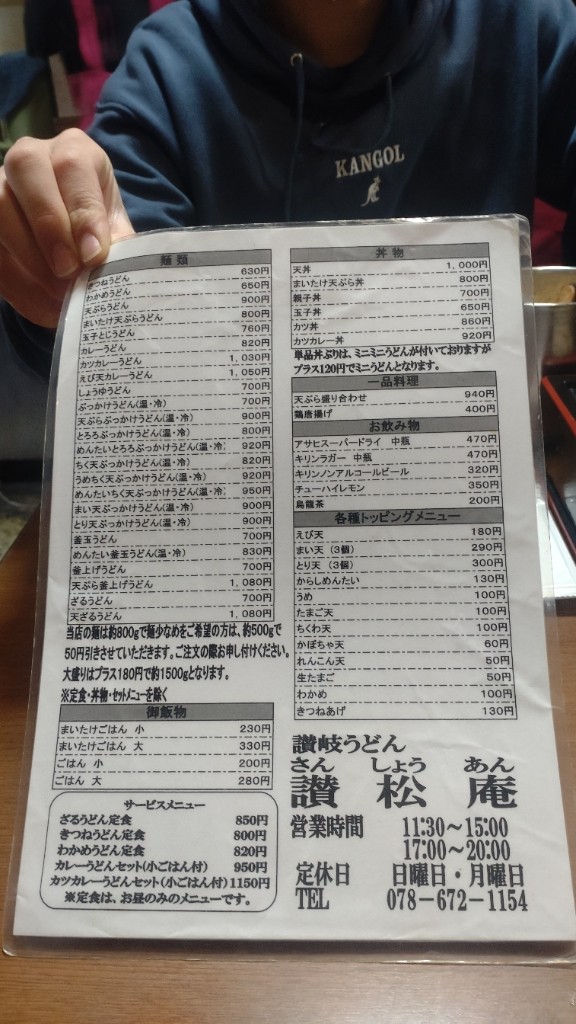 KANGOL
麺類
きつねうどん 630円
わかめうどん 650円
天ぷらうどん 900円
まいたけ天ぷらうどん 800円
玉子とじうどん 760円
カレーうどん 820円
カツカレーうどん 1,030円
えび天カレーうどん 1,050円
しょうゆうどん 700円
ぶっかけうどん(温・冷) 700円
天ぷらぶっかけうどん(温・冷) 900円
とろろぶっかけうどん(温・冷) 800円
めんたいとろろぶっかけうどん(温・冷) 920円
ちく天ぶっかけうどん(温・冷) 820円
うめちく天ぶっかけうどん(温・冷) 920円
めんたいちく天ぶっかけうどん(温・冷) 950円
まい天ぶっかけうどん(温・冷) 900円
とり天ぶっかけうどん(温・冷) 900円
釜玉うどん 700円
めんたい釜玉うどん(温・冷) 830円
釜上げうどん 700円
天ぷら釜上げうどん 1,080円
ざるうどん 700円
天ざるうどん 1,080円
当店の麺は約800gで麺少なめをご希望の方は、約500gで
50円引きさせていただきます。ご注文の際お申し付けください。
大盛りはプラス180円で約1500gとなります。
※定食・丼物・セットメニューを除く
御飯物
まいたけごはん 小 230円
まいたけごはん 大 330円
ごはん 小 200円
ごはん 大 280円
サービスメニュー
ざるうどん定食 850円
きつねうどん定食 800円
わかめうどん定食 820円
カレーうどんセット(小ごはん付) 950円
カツカレーうどんセット(小ごはん付) 1150円
※定食は、お昼のみのメニューです。
丼物
天丼 1,000円
まいたけ天ぷら丼 800円
親子丼 700円
玉子丼 650円
カツ丼 860円
カツカレー丼 920円
単品丼ぶりは、ミニミニうどんが付いておりますが
プラス120円でミニうどんとなります。
一品料理
天ぷら盛り合わせ 940円
鶏唐揚げ 400円
お飲み物
アサヒスーパードライ 中瓶 470円
キリンラガー 中瓶 470円
キリンノンアルコールビール 320円
チューハイレモン 350円
烏龍茶 200円
各種トッピングメニュー
えび天 180円
まい天 (3個) 290円
とり天 (3個) 300円
からしめんたい 130円
うめ 100円
たまご天 100円
ちくわ天 100円
かぼちゃ天 60円
れんこん天 50円
生たまご 50円
わかめ 100円
きつねあげ 130円
讃岐うどん
さん しょう あん
讃松庵
営業時間 11:30～15:00
17:00～20:00
定休日 日曜日・月曜日
TEL 078-672-1154